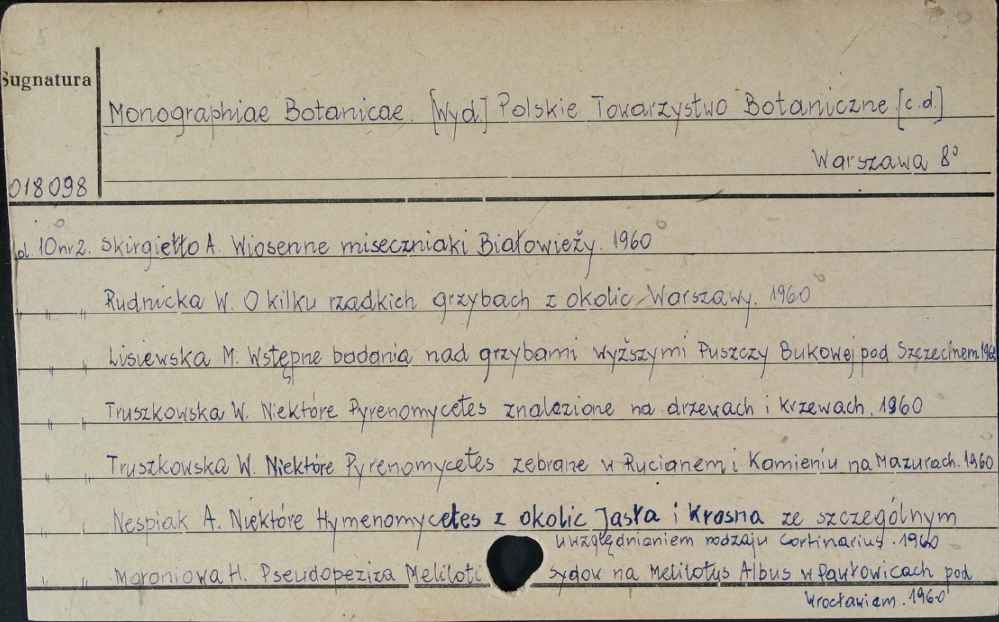 Sugnatura
Monographiae Botanicae. [Wyd] Polskie Towarzystwo Botaniczne [c.d]
Warszawa 8°
018098
ol. 10 nr 2. Skirgiełło A. Wiosenne miseczniaki Białowieży. 1960
" " Rudnicka W. O kilku rzadkich grzybach z okolic Warszawy. 1960
" " Lisiewska M. Wstępne badania nad grzybami wyższymi Puszczy Bukowej pod Szczecinem 1960
" " Truszkowska W. Niektóre Pyrenomycetes znalezione na drzewach i krzewach. 1960
" " Truszkowska W. Niektóre Pyrenomycetes zebrane w Rucianem i Kamieniu na Mazurach. 1960
" " Nespiak A. Niektóre Hymenomycetes z okolic Jasła i Krosna ze szczególnym
uwzględnianiem rodzaju Cortinarius. 1960
" " Moroniowa H. Pseudopeziza Meliloti Sydow na Melilotus Albus w Pawłowicach pod
Wrocławiem. 1960